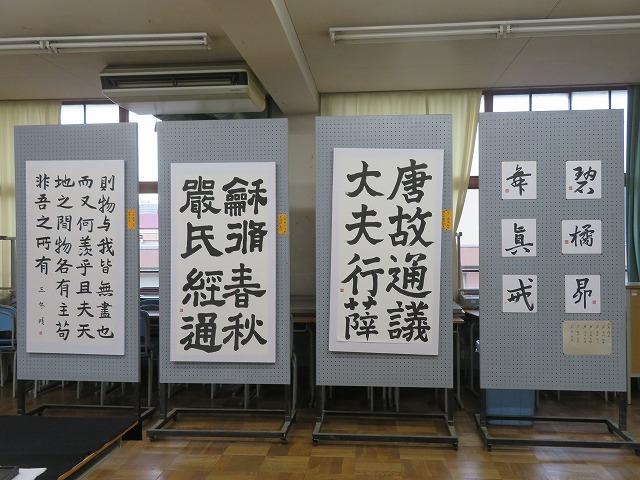 則物与我皆無盡也
而又何羨乎且夫天
地之間物各有主苟
非吾之所有
龢脩春秋
嚴氏經通
唐故通議
大夫行薛
碧
橘
昴
眞
戒